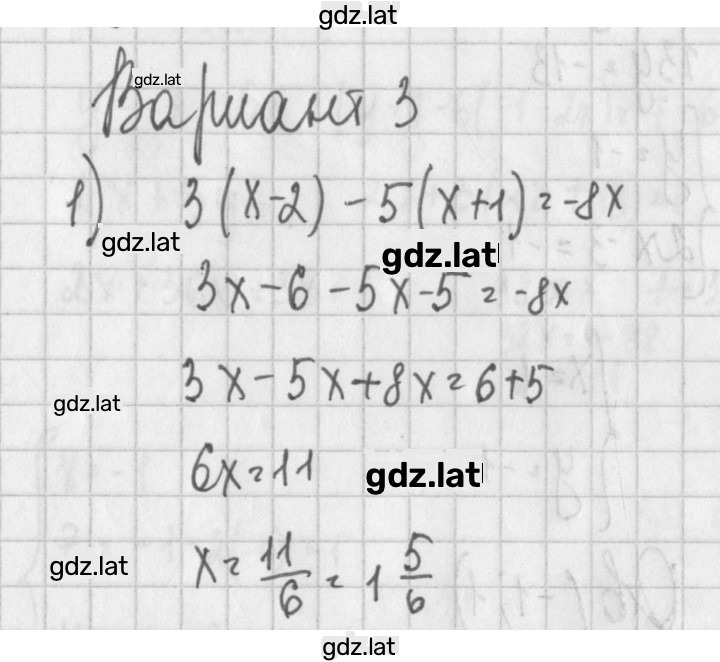 gdz.lat
gdz.lat
Вариант 3
1) 3(x-2) - 5(x+1) = -8x
gdz.lat
gdz.lat
3x - 6 - 5x - 5 = -8x
3x - 5x + 8x = 6 + 5
gdz.lat
6x = 11
gdz.lat
x = 11/6 = 1 5/6
gdz.lat
gdz.lat